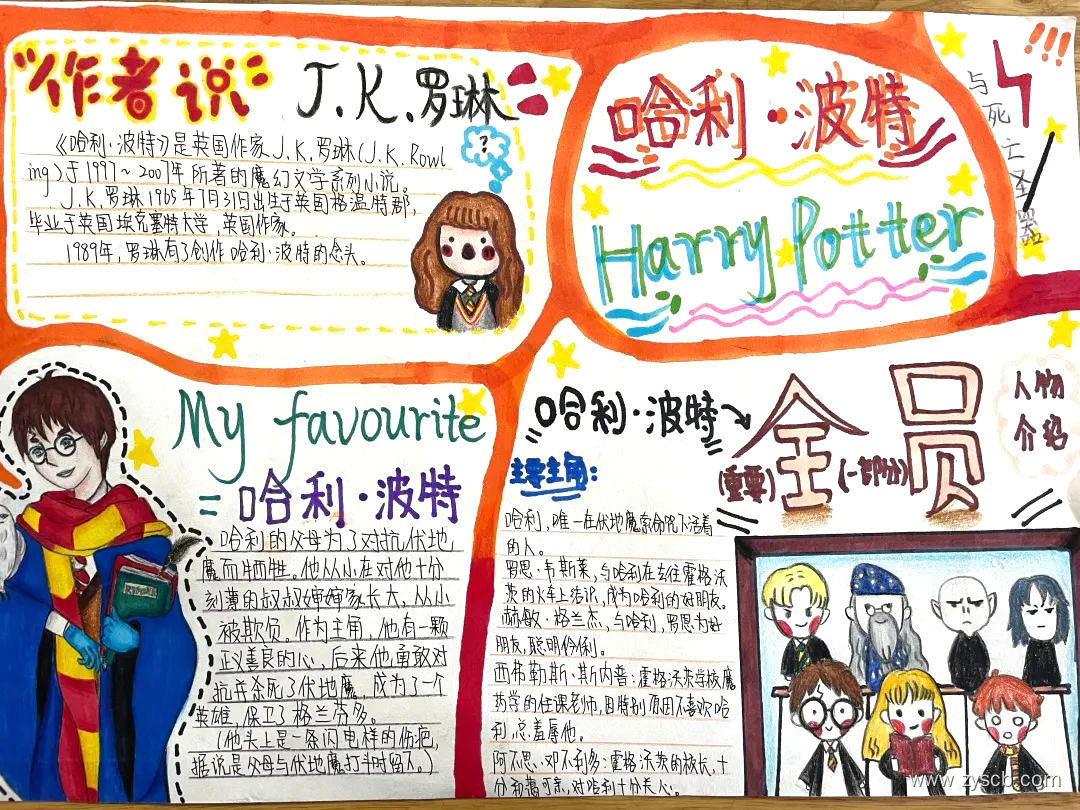 作者说
J.K.罗琳
《哈利·波特》是英国作家J.K.罗琳(J.K.Rowl
ing)于1997~2007年所著的魔幻文学系列小说。
J.K.罗琳1965年7月31日出生于英国格温特郡,
毕业于英国埃克塞特大学,英国作家。
1989年,罗琳有了创作哈利·波特的念头。
?
哈利·波特
Harry Potter
与死亡圣器
!!!
My favourite
=哈利·波特
哈利的父母为了对抗伏地
魔而牺牲。他从小在对他十分
刻薄的叔叔婶婶家长大,从小
被欺负。作为主角,他有一颗
正义善良的心,后来他勇敢对
抗并杀死了伏地魔,成为了一个
英雄,保卫了格兰芬多。
(他头上是一条闪电样的伤疤,
据说是父母与伏地魔打斗时留入。)
哈利·波特
(重要)
全
(一部分)
员
人物
介绍
主要主角:
哈利,唯一在伏地魔索命咒下活着
的人。
罗恩·韦斯莱,与哈利在去往霍格沃
茨的火车上结识,成为哈利的好朋友。
赫敏·格兰杰,与哈利,罗恩为好
朋友,聪明伶俐。
西弗勒斯·斯内普:霍格沃茨学校魔
药学的任课老师,因特别原因不喜欢哈
利,总羞辱他。
阿不思·邓不利多:霍格沃茨的校长,十
分和蔼可亲,对哈利十分关心。
www.zyscb.com